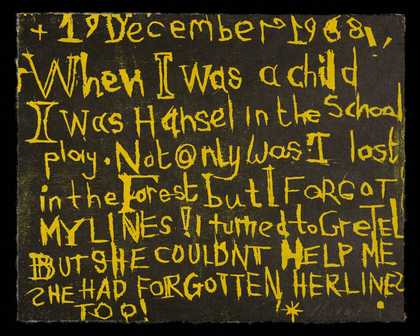 + 19 December 1968,,
When I was a child
I was Hansel in the School
play. Not Only Was I lost
in the Forest but I FORGOT
MY LINES! I turned to GreTEL
BUT SHE COULDNT HELP ME
SHE HAD FORGOTTEN HER LINES
TOO! !*